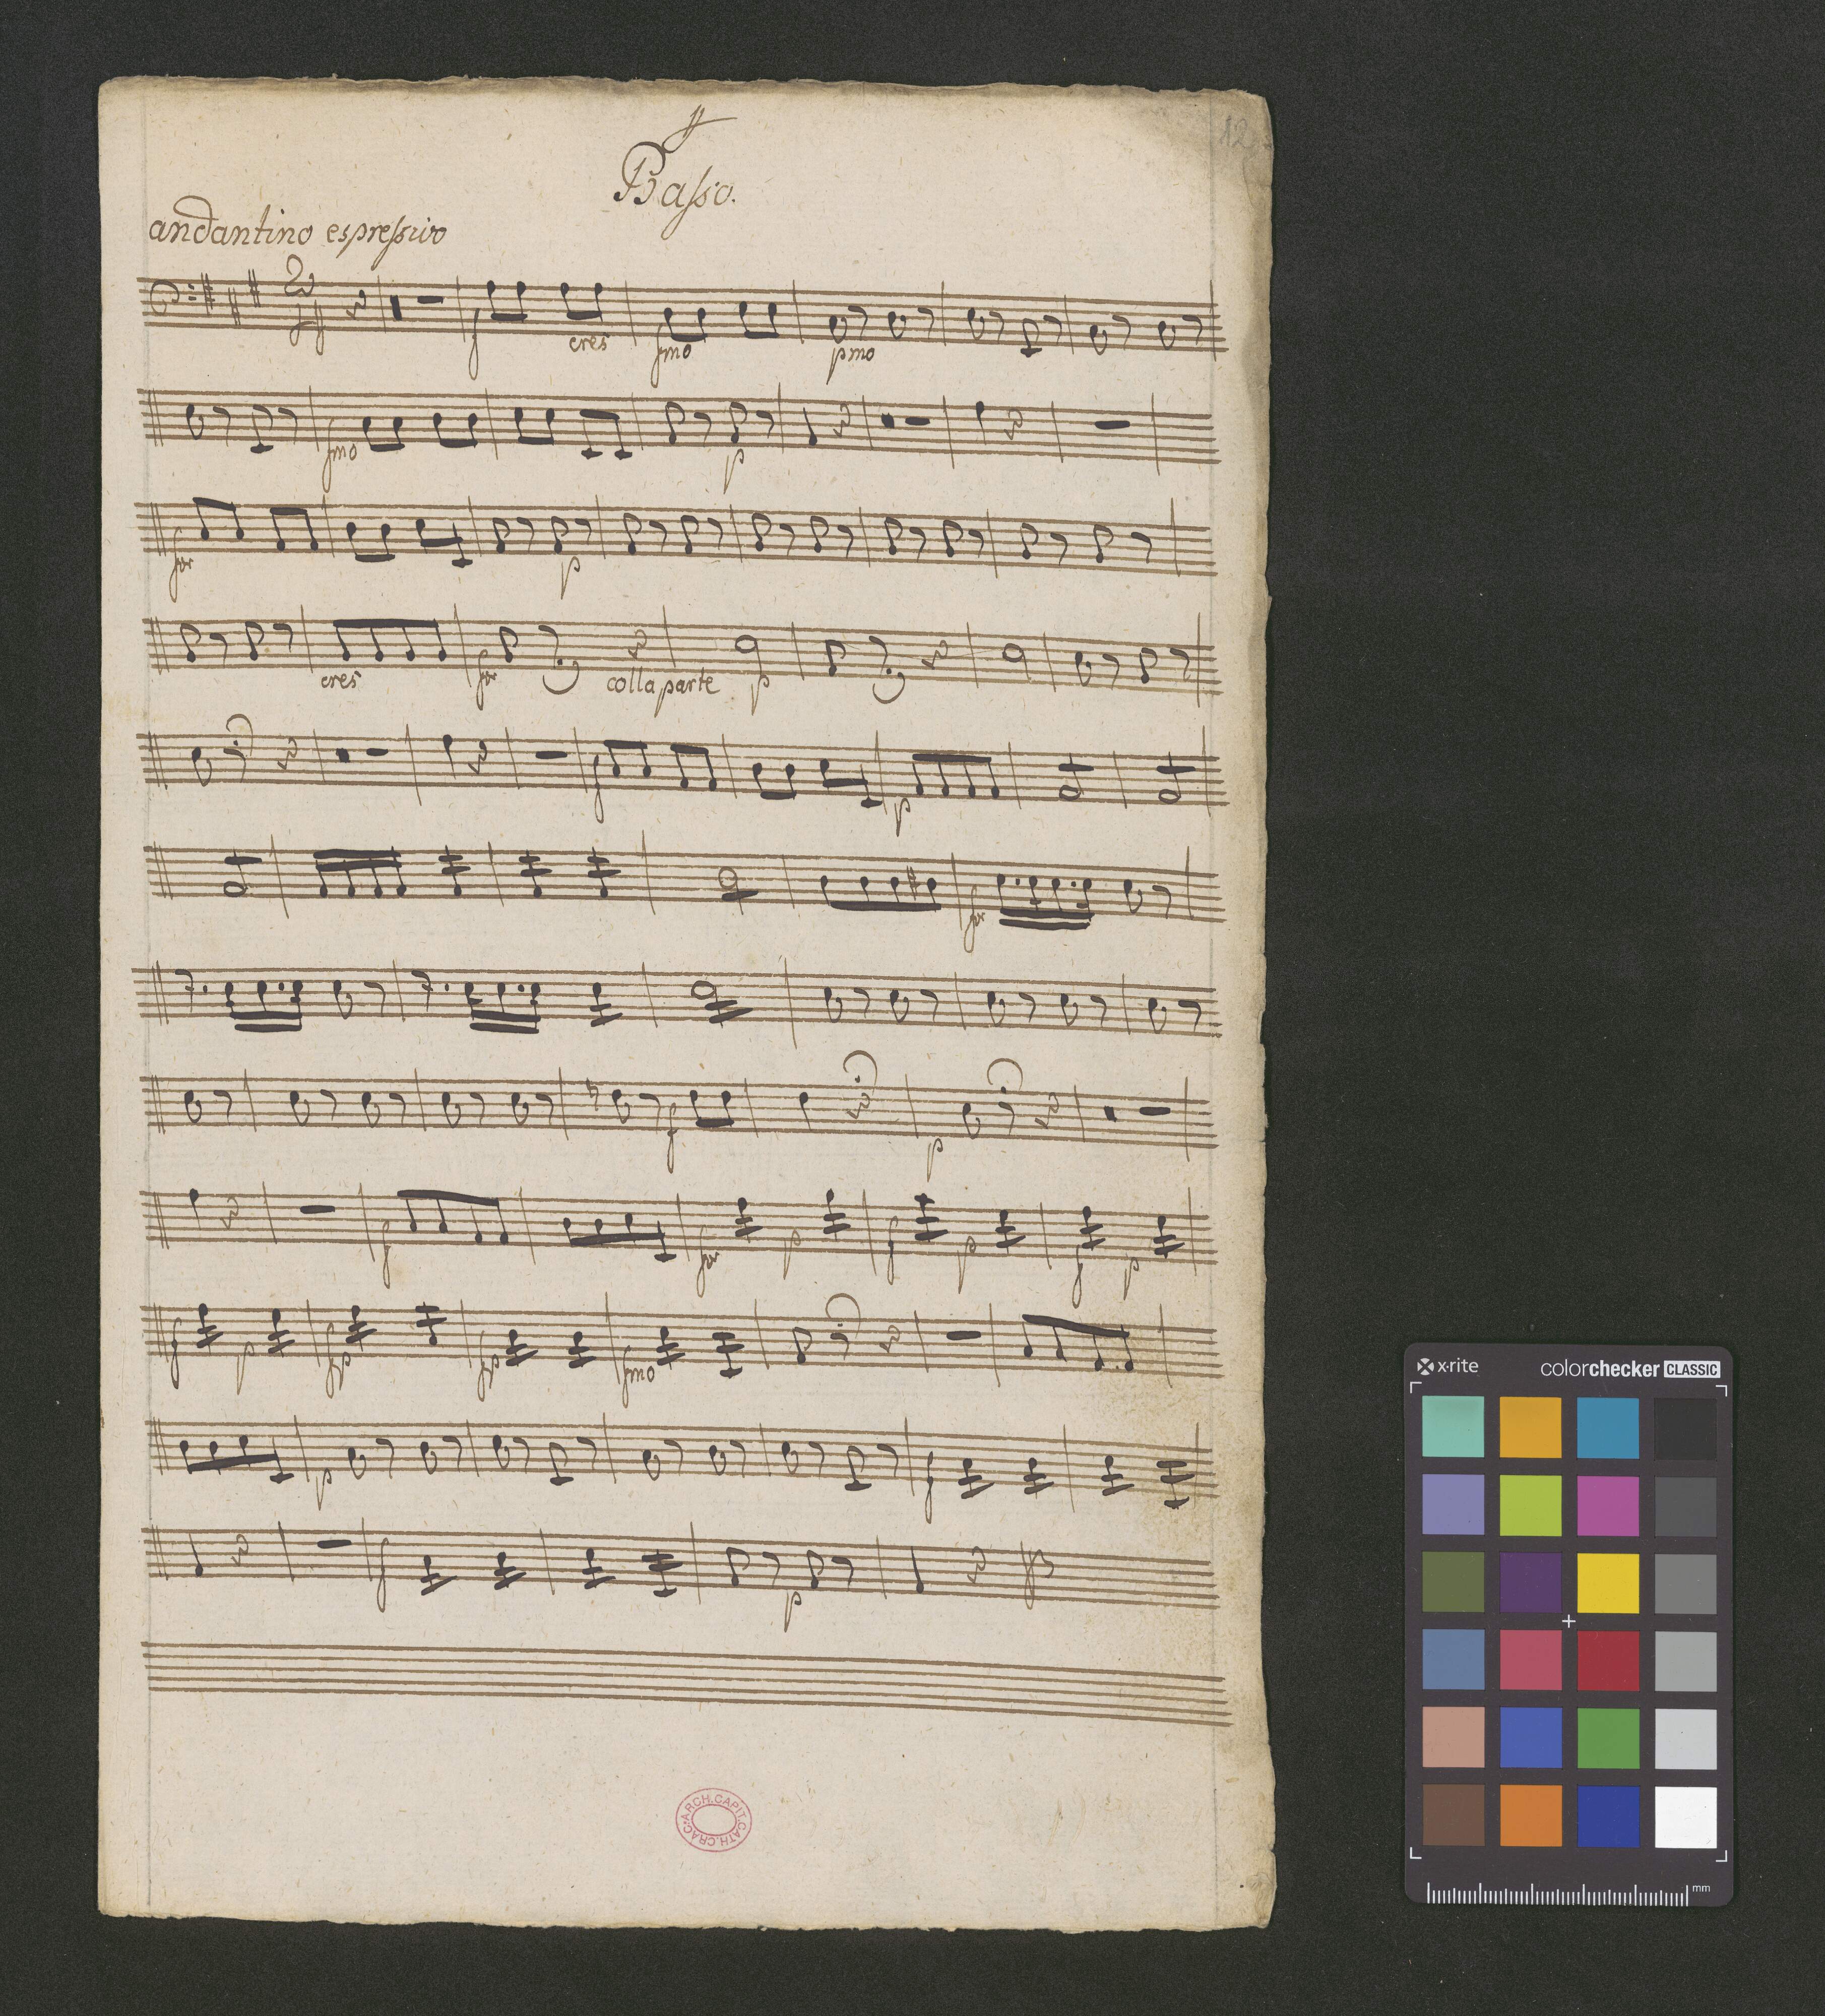 12
Basso.
andantino espressivo
2
4
f cres fmo pmo
fmo p
for p
cres for colla parte p
f p
for
f p
f for p f p f p
f p fp fp fmo
p f
f p
ARCH. CAPIT. CATH. CRAC.
x·rite colorchecker CLASSIC
mm